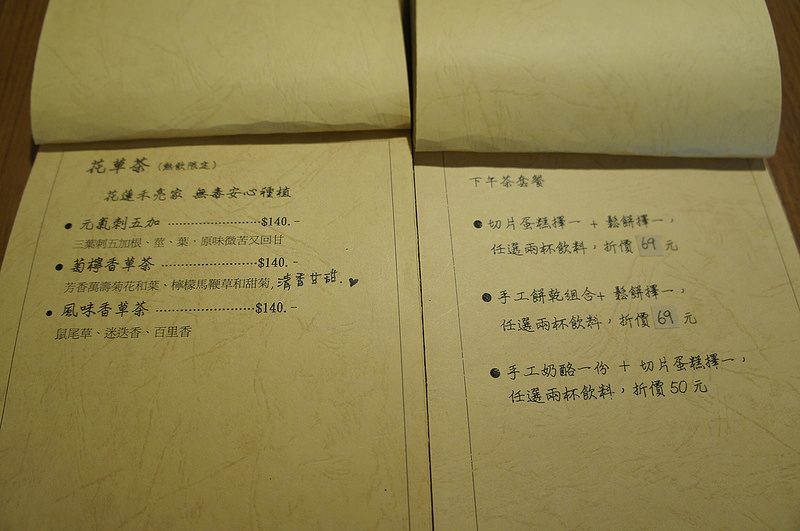 花草茶 (熱飲限定)
花蓮禾亮家 無毒安心種植
● 元氣刺五加 ........................$140.-
三葉刺五加根、莖、葉，原味微苦又回甘
● 萄檸香草茶 ........................$140.-
芳香萬壽菊花和葉、檸檬馬鞭草和甜菊,清香甘甜.♥
● 風味香草茶 ........................$140.-
鼠尾草、迷迭香、百里香
下午茶套餐
● 切片蛋糕擇一 + 鬆餅擇一，
任選兩杯飲料，折價 69 元
● 手工餅乾組合+ 鬆餅擇一，
任選兩杯飲料，折價 69 元
● 手工奶酪一份 + 切片蛋糕擇一，
任選兩杯飲料，折價 50 元